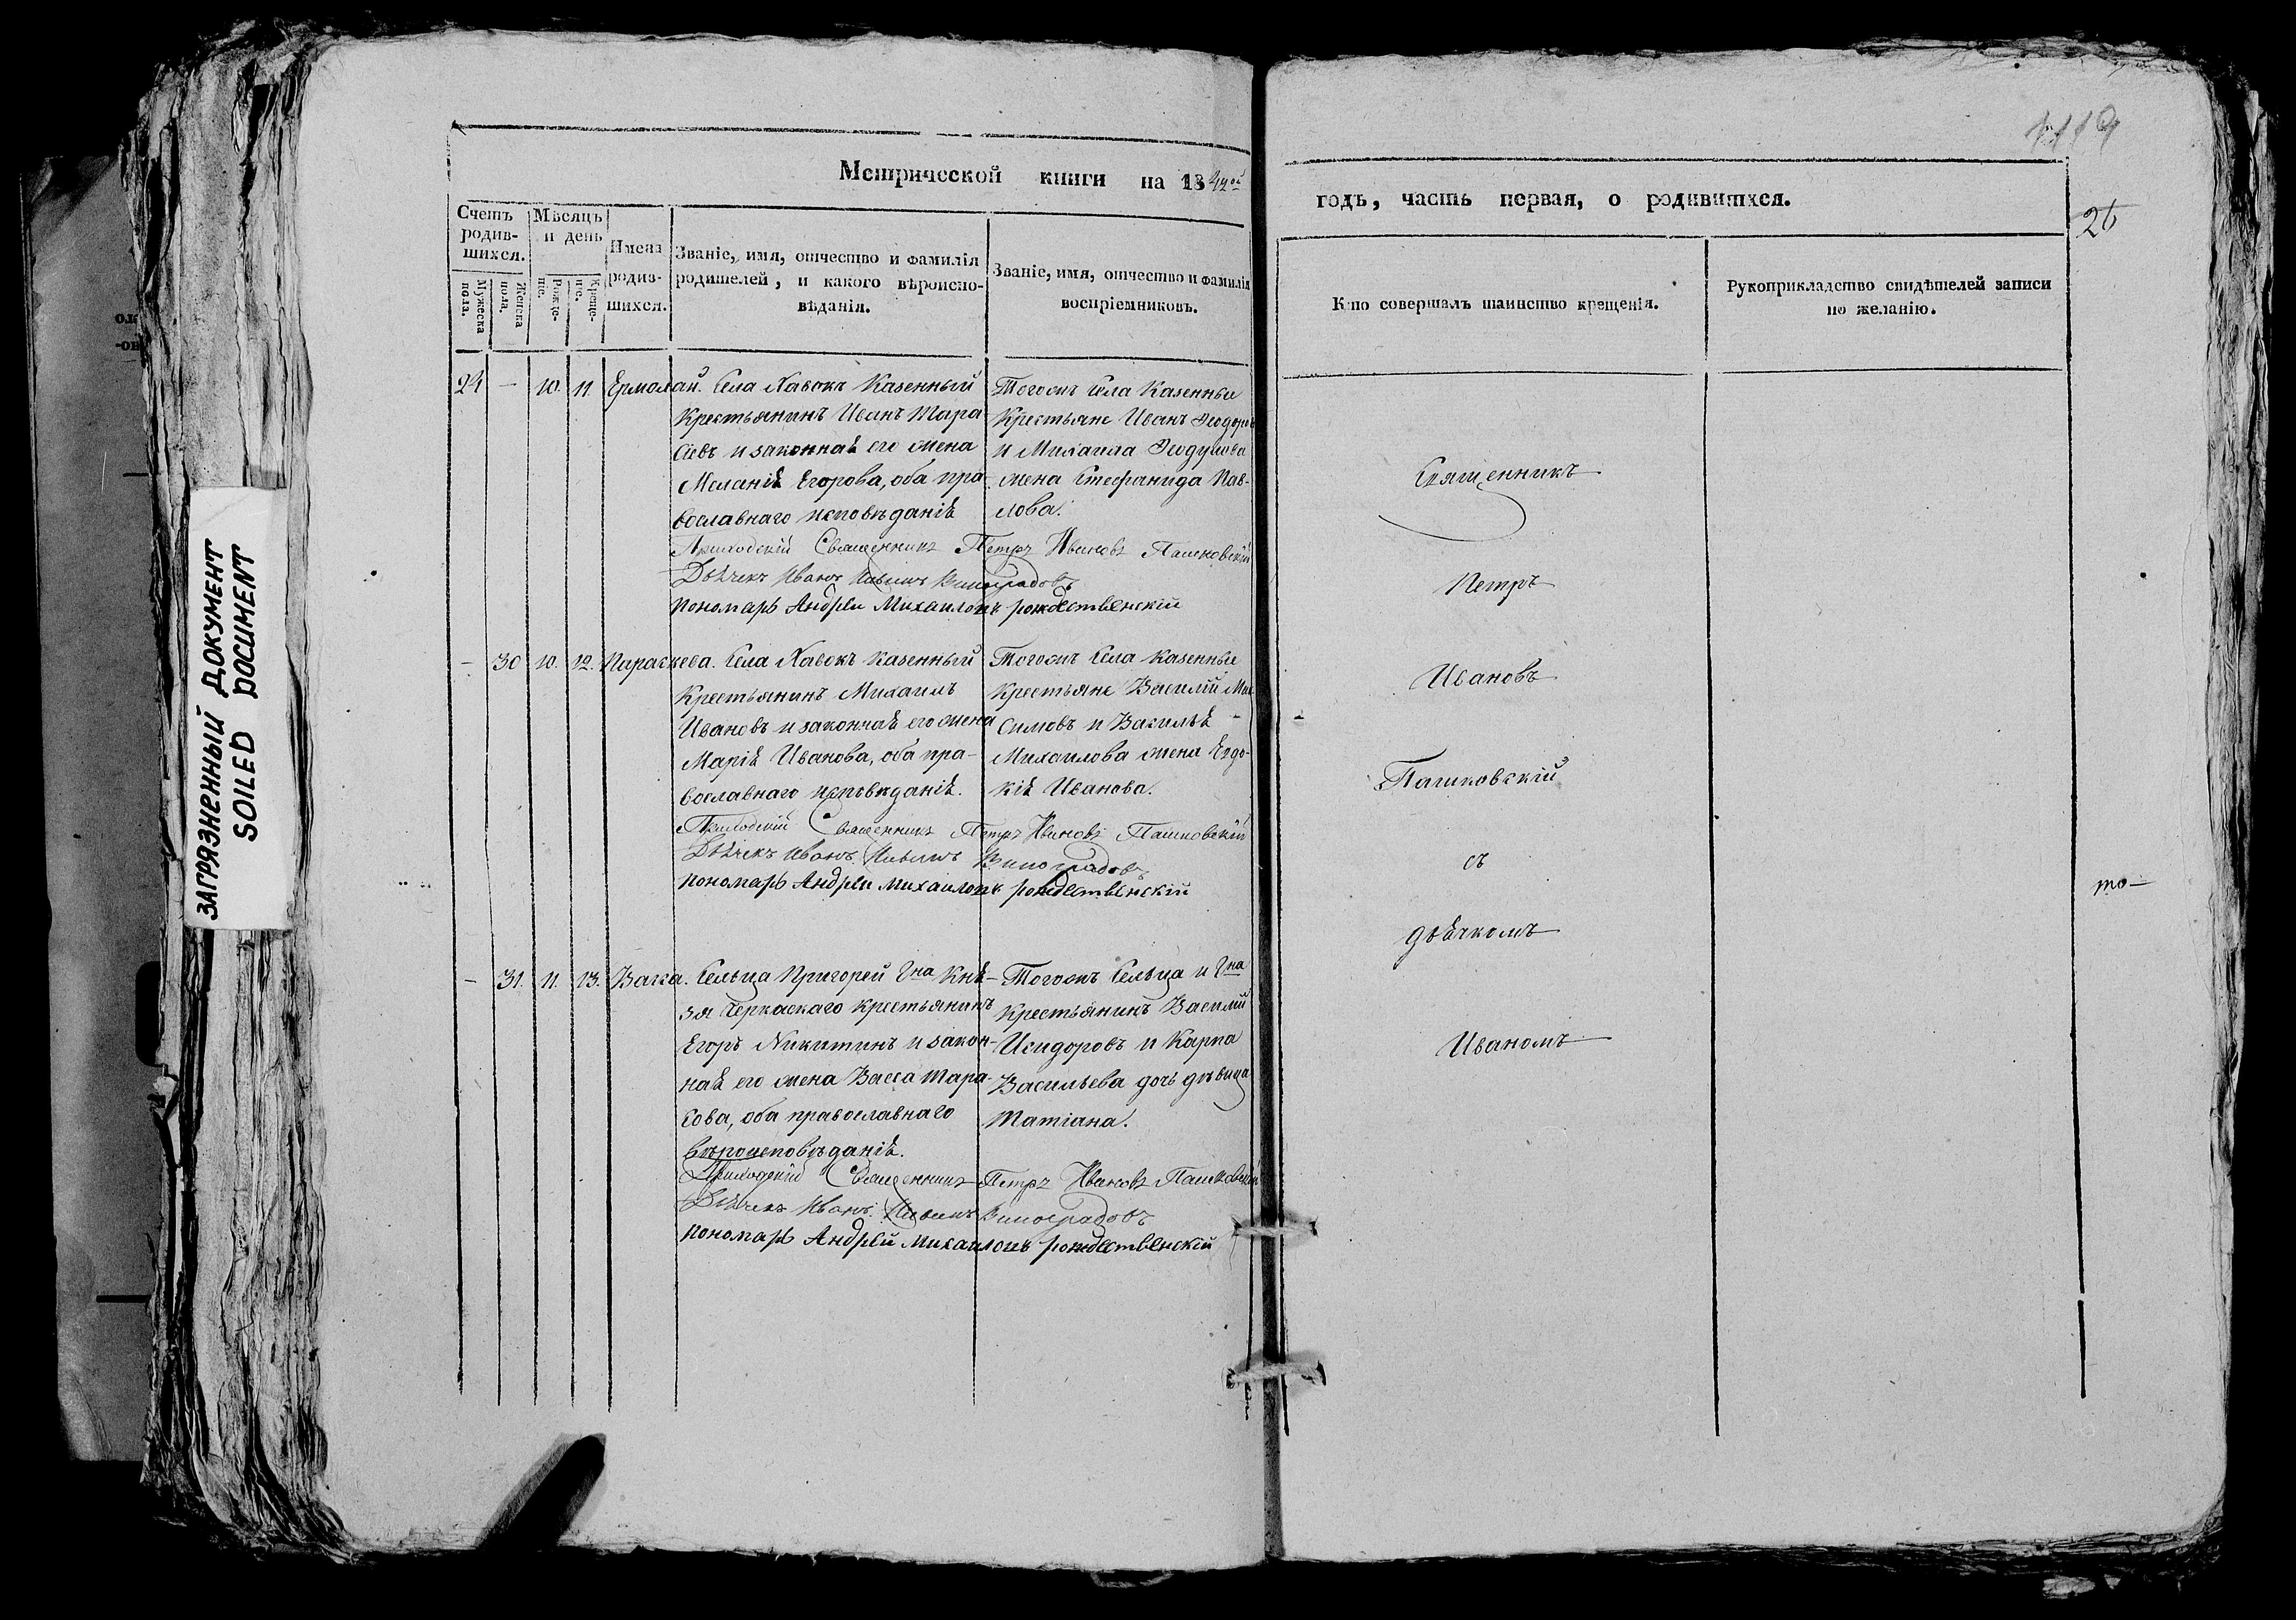 119
Метрической книги на 1842ой
годъ, часть первая, о родившихся.
26
Счетъ родив-шихся.
Мужеска пола.
Женска пола.
Мѣсяцъ и день
Рожде-ніе.
Креще-ніе.
Имена родив-шихся.
Званіе, имя, отчество и фамилія
родителей, и какого вѣроиспо-
вѣданія.
Званіе, имя, отчество и фамилія
воспріемниковъ.
Кто совершалъ таинство крещенія.
Рукоприкладство свидѣтелей записи
по желанію.
24 — 10. 11. Ермолай. Села Хавокъ Казенный
Крестьянинъ Иванъ Тара
сіевъ и законная его жена
Меланія Егорова, оба пра
вославнаго исповѣданія
Тогожъ Села Казенные
Крестьяне Иванъ Ѳеодоров
и Михаила Ѳеодулова
жена Стефанида Пав-
лова.
Приходскій Священникъ Петръ Ивановъ Пашковскій
Дьячекъ Иванъ Виноградовъ
пономарь Андрей Михаиловъ рождественскій
— 30 10. 12. Параскева. Села Хавокъ Казенный
Крестьянинъ Михаилъ
Ивановъ и законная его жена
Марія Иванова, оба пра-
вославнаго исповѣданія.
Тогожъ Села казенные
крестьяне Василій Мак
симовъ и Василья
Михаилова жена Евдо-
кія Иванова.
Приходскій Священникъ Петръ Ивановъ Пашковскій
Дьячекъ Иванъ Виноградовъ
пономарь Андрей Михаиловъ рождественскій
— 31. 11. 13. Васса. Сельца Пригорей Гна Кня-
зя Черкаскаго крестьянинъ
Егоръ Никитинъ и закон-
ная его жена Васса Тара-
сова, оба православнаго
вѣроисповѣданія.
Тогожъ Сельца и Гна
крестьянинъ Василій
Исидоровъ и Карпа
Васильева дочь дѣвица
Татіана.
Приходскій Священникъ Петръ Ивановъ Пашковскій
Дьячекъ Иванъ Виноградовъ
пономарь Андрей Михаиловъ рождественскій
Священникъ
Петръ
Ивановъ
Пашковскій
съ
дьячкомъ
Иваномъ
то—
ЗАГРЯЗНЕННЫЙ ДОКУМЕНТ
SOILED DOCUMENT